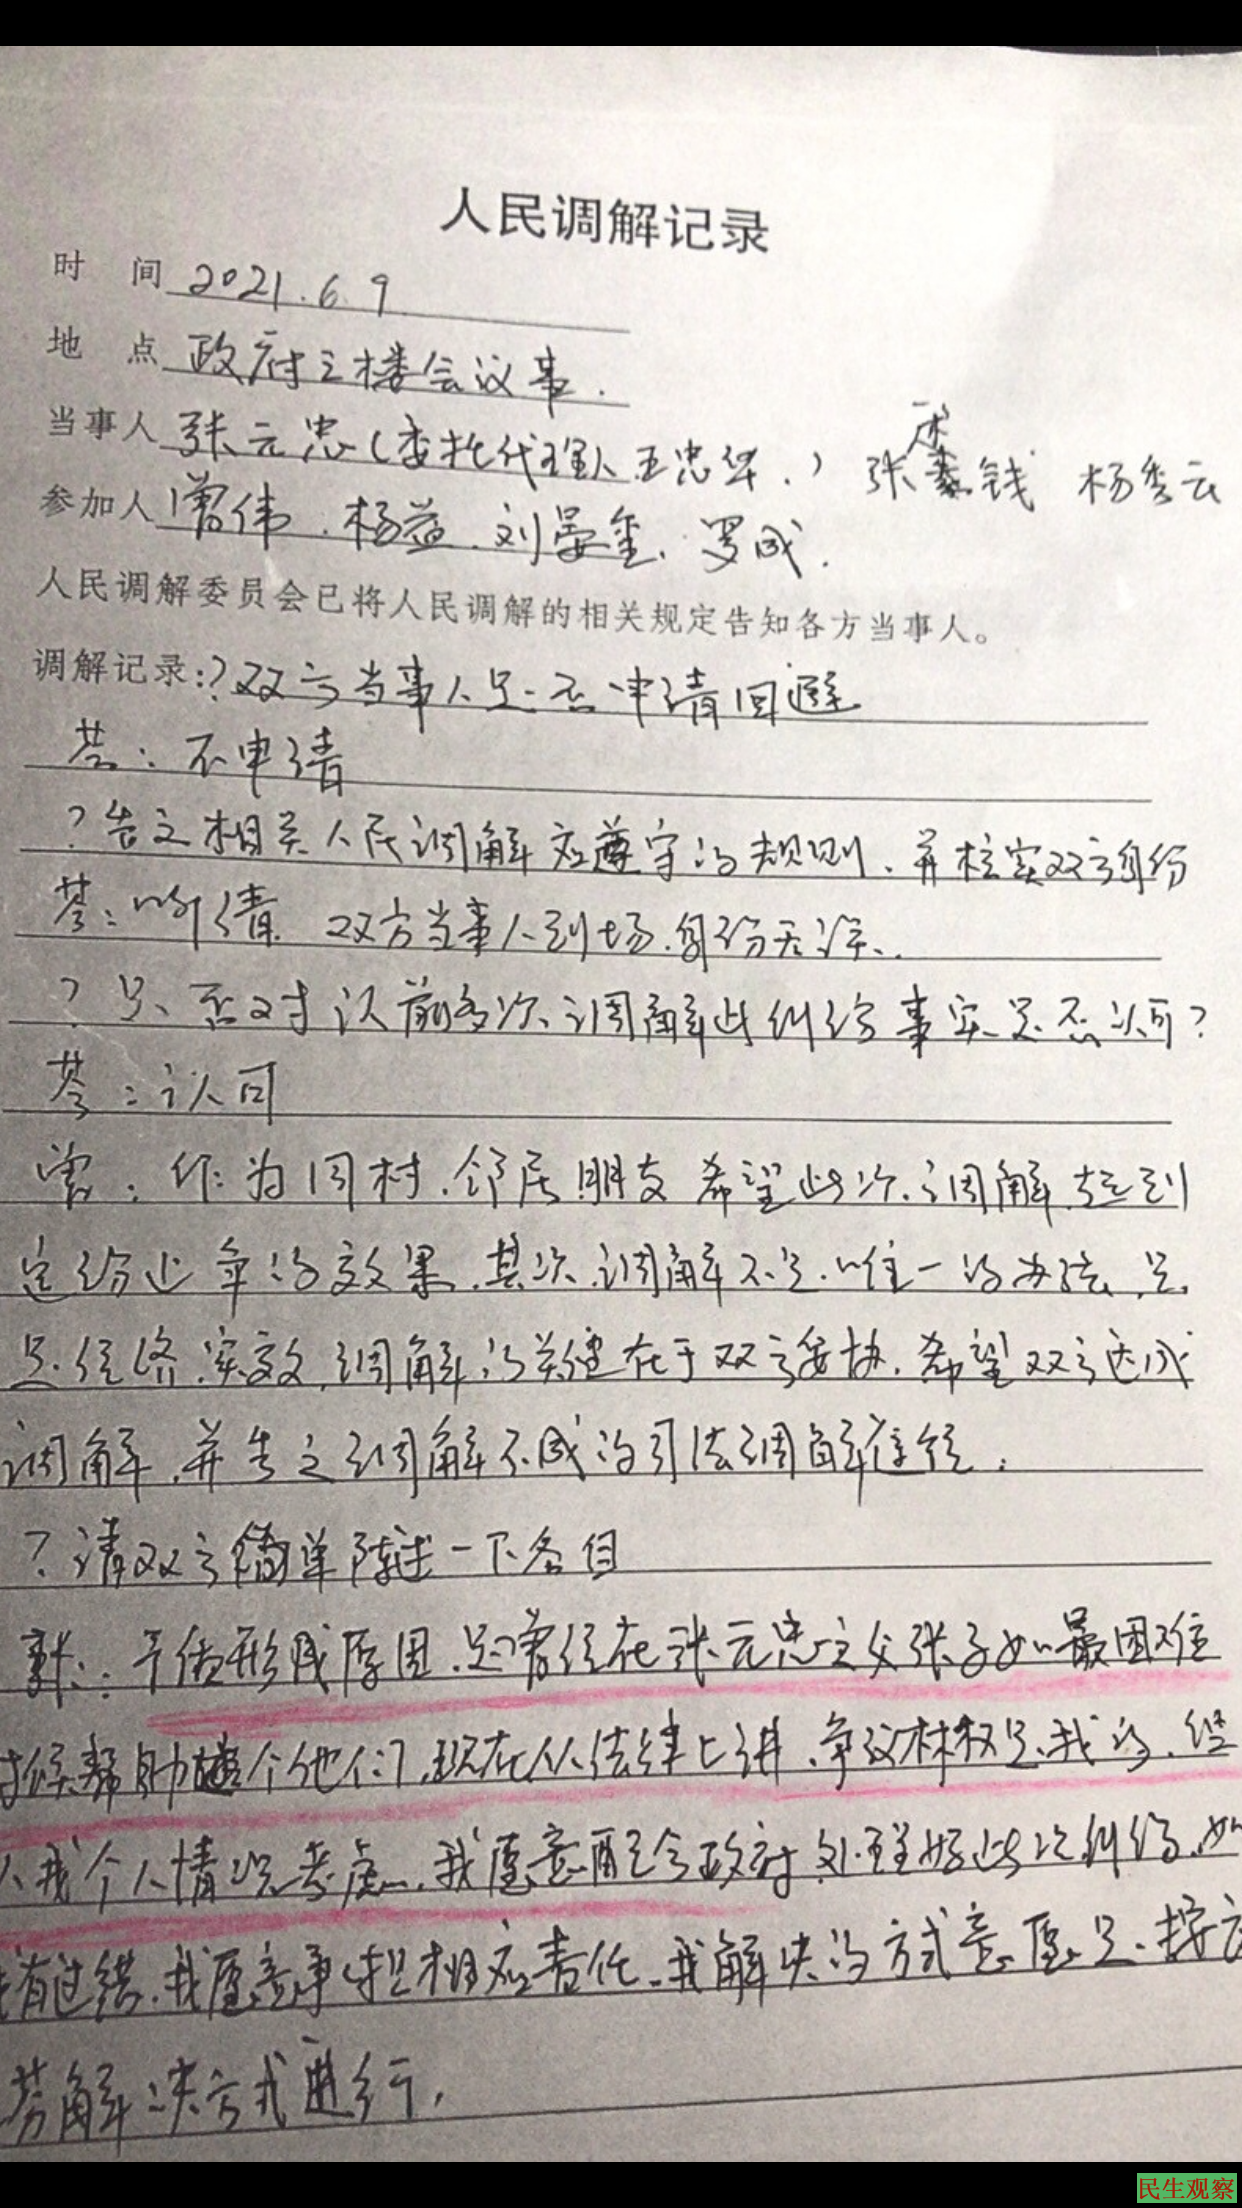 人民调解记录
时 间 2021.6.9
地 点 政府三楼会议事.
当事人 张元忠(委托代理人王忠华.) 张 钱 杨秀云
参加人 曾伟.杨益.刘晏奎.罗成.
人民调解委员会已将人民调解的相关规定告知各方当事人。
调解记录:?双方当事人是否申请回避
答:不申请
?告之相关人民调解应遵守的规则.并核实双方身份
答:听清.双方当事人到场.身份无误.
?是否对以前多次调解此纠纷事实是否认可?
答:认可
曾:作为同村.邻居朋友希望此次调解起到
定纷止争的效果.其次调解不是唯一的办法.是
是经济.实效.调解的关键在于双方妥协.希望双方达成
调解.并告之调解不成的司法调解途径.
?请双方简单陈述一下各自
张:干仗形成原因.是曾经在张元忠之父张子如最困难
时候帮助 个他们.现在从法律上讲.争议林权是我的.但
从我个人情况考虑.我愿意配合政府处理好此次纠纷.如
我有过错.我愿意承担相应责任.我解决的方式意愿是.按
解决方式进行.
民生观察